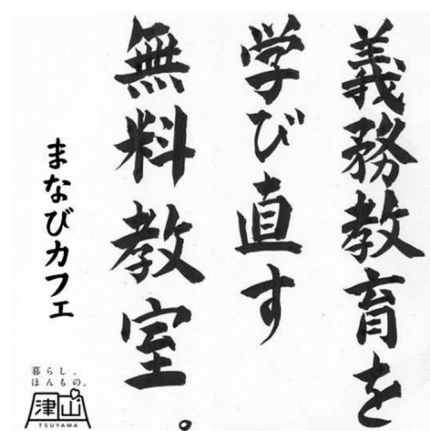 義務教育を
学び直す
無料教室。
まなびカフェ
暮らし、
ほんもの。
津山
TSUYAMA